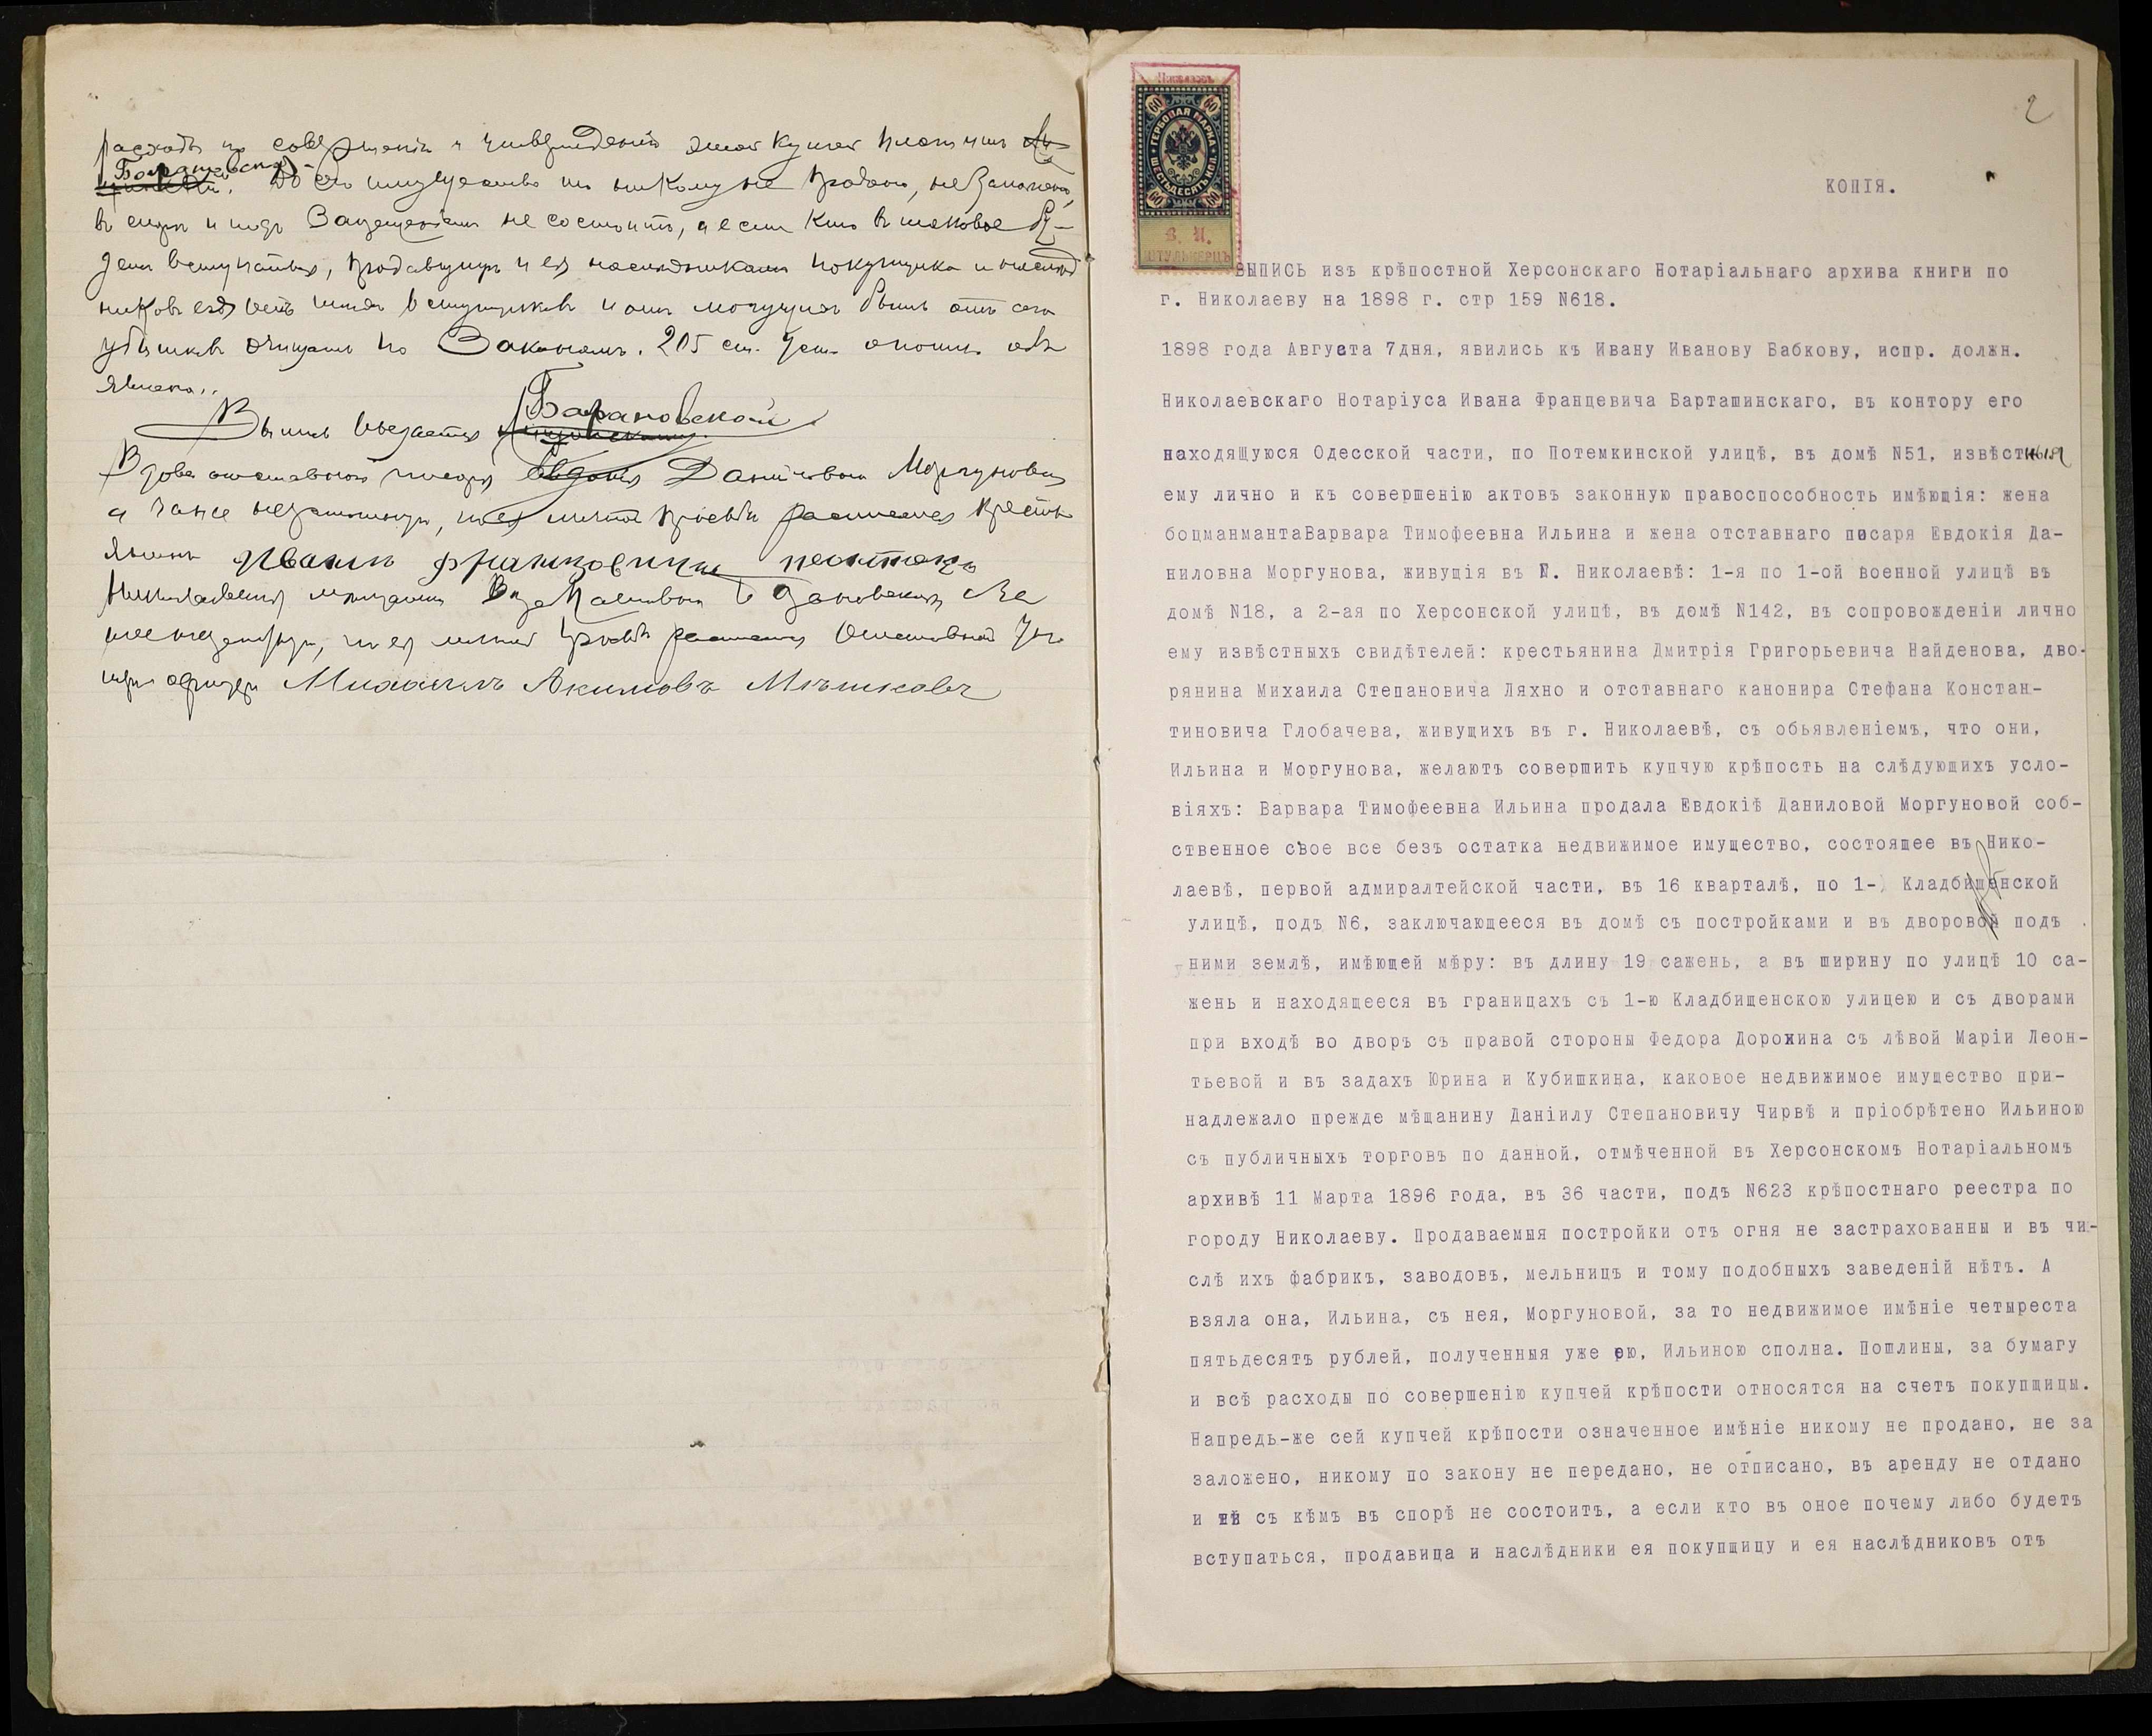 расходы по совершенію и утвержденію этой купчей платитъ
Барановская. До сего имущество это никому не продано, не заложено,
въ спорѣ и подъ запрещеніемъ не состоитъ, а если кто въ таковое бу-
детъ вступаться, продавица и ея наслѣдники покупщика и наслѣд
никовъ ея отъ тѣхъ вступщиковъ и отъ могущихъ быть отъ сего
убытковъ очищать по Законамъ. 205 ст. Уст. о пошл. объ
явлена..
Выпись выдается Барановской
Вдова отставного писаря Даниловна Моргунова
а за нее неграмотную, по ея личной просьбѣ росписался кресть
янинъ Иванъ
Николаевская мѣщанка
по ея личной просьбѣ Отставной Ун
теръ офицеръ Михаилъ Акимовъ Мѣшковъ
2
Николаевъ
60 60
ГЕРБОВАЯ МАРКА
ШЕСТЬДЕСЯТЪ КОП.
60 60
З. И.
ШТУЛЬКЕРЦЪ
КОПІЯ.
ВЫПИСЬ изъ крѣпостной Херсонскаго Нотаріальнаго архива книги по
г. Николаеву на 1898 г. стр 159 N618.
1898 года Августа 7дня, явились къ Ивану Иванову Бабкову, испр. должн.
Николаевскаго Нотаріуса Ивана Францевича Барташинскаго, въ контору его
находящуюся Одесской части, по Потемкинской улицѣ, въ домѣ N51, извѣстныя
ему лично и къ совершенію актовъ законную правоспособность имѣющія: жена
боцманмантаВарвара Тимофеевна Ильина и жена отставнаго писаря Евдокія Да-
ниловна Моргунова, живущія въ Г. Николаевѣ: 1-я по 1-ой военной улицѣ въ
домѣ N18, а 2-ая по Херсонской улицѣ, въ домѣ N142, въ сопровожденіи лично
ему извѣстныхъ свидѣтелей: крестьянина Дмитрія Григорьевича Найденова, дво-
рянина Михаила Степановича Ляхно и отставнаго канонира Стефана Констан-
тиновича Глобачева, живущихъ въ г. Николаевѣ, съ обьявленіемъ, что они,
Ильина и Моргунова, желаютъ совершить купчую крѣпость на слѣдующихъ усло-
віяхъ: Варвара Тимофеевна Ильина продала Евдокіѣ Даниловой Моргуновой соб-
ственное свое все безъ остатка недвижимое имущество, состоящее въ Нико-
лаевѣ, первой адмиралтейской части, въ 16 кварталѣ, по 1- Кладбищенской
улицѣ, подъ N6, заключающееся въ домѣ съ постройками и въ дворовой подъ
ними землѣ, имѣющей мѣру: въ длину 19 сажень, а въ ширину по улицѣ 10 са-
жень и находящееся въ границахъ съ 1-ю Кладбищенскою улицею и съ дворами
при входѣ во дворъ съ правой стороны Федора Дорохина съ лѣвой Маріи Леон-
тьевой и въ задахъ Юрина и Кубишкина, каковое недвижимое имущество при-
надлежало прежде мѣщанину Даніилу Степановичу Чирвѣ и пріобрѣтено Ильиною
съ публичныхъ торговъ по данной, отмѣченной въ Херсонскомъ Нотаріальномъ
архивѣ 11 Марта 1896 года, въ 36 части, подъ N623 крѣпостнаго реестра по
городу Николаеву. Продаваемыя постройки отъ огня не застрахованны и въ чи-
слѣ ихъ фабрикъ, заводовъ, мельницъ и тому подобныхъ заведеній нѣтъ. А
взяла она, Ильина, съ нея, Моргуновой, за то недвижимое имѣніе четыреста
пятьдесятъ рублей, полученныя уже ею, Ильиною сполна. Пошлины, за бумагу
и всѣ расходы по совершенію купчей крѣпости относятся на счетъ покупщицы.
Напредь-же сей купчей крѣпости означенное имѣніе никому не продано, не за
заложено, никому по закону не передано, не отписано, въ аренду не отдано
и ни съ кѣмъ въ спорѣ не состоитъ, а если кто въ оное почему либо будетъ
вступаться, продавица и наслѣдники ея покупщицу и ея наслѣдниковъ отъ